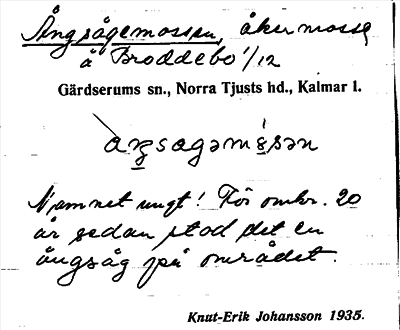 Ångsågemossen, åkermosse
å Broddebo 1/12
Gärdserums sn., Norra Tjusts hd., Kalmar l.
Namnet ungt! För omkr. 20
år sedan stod det en
ångsåg på området.
Knut-Erik Johansson 1935.